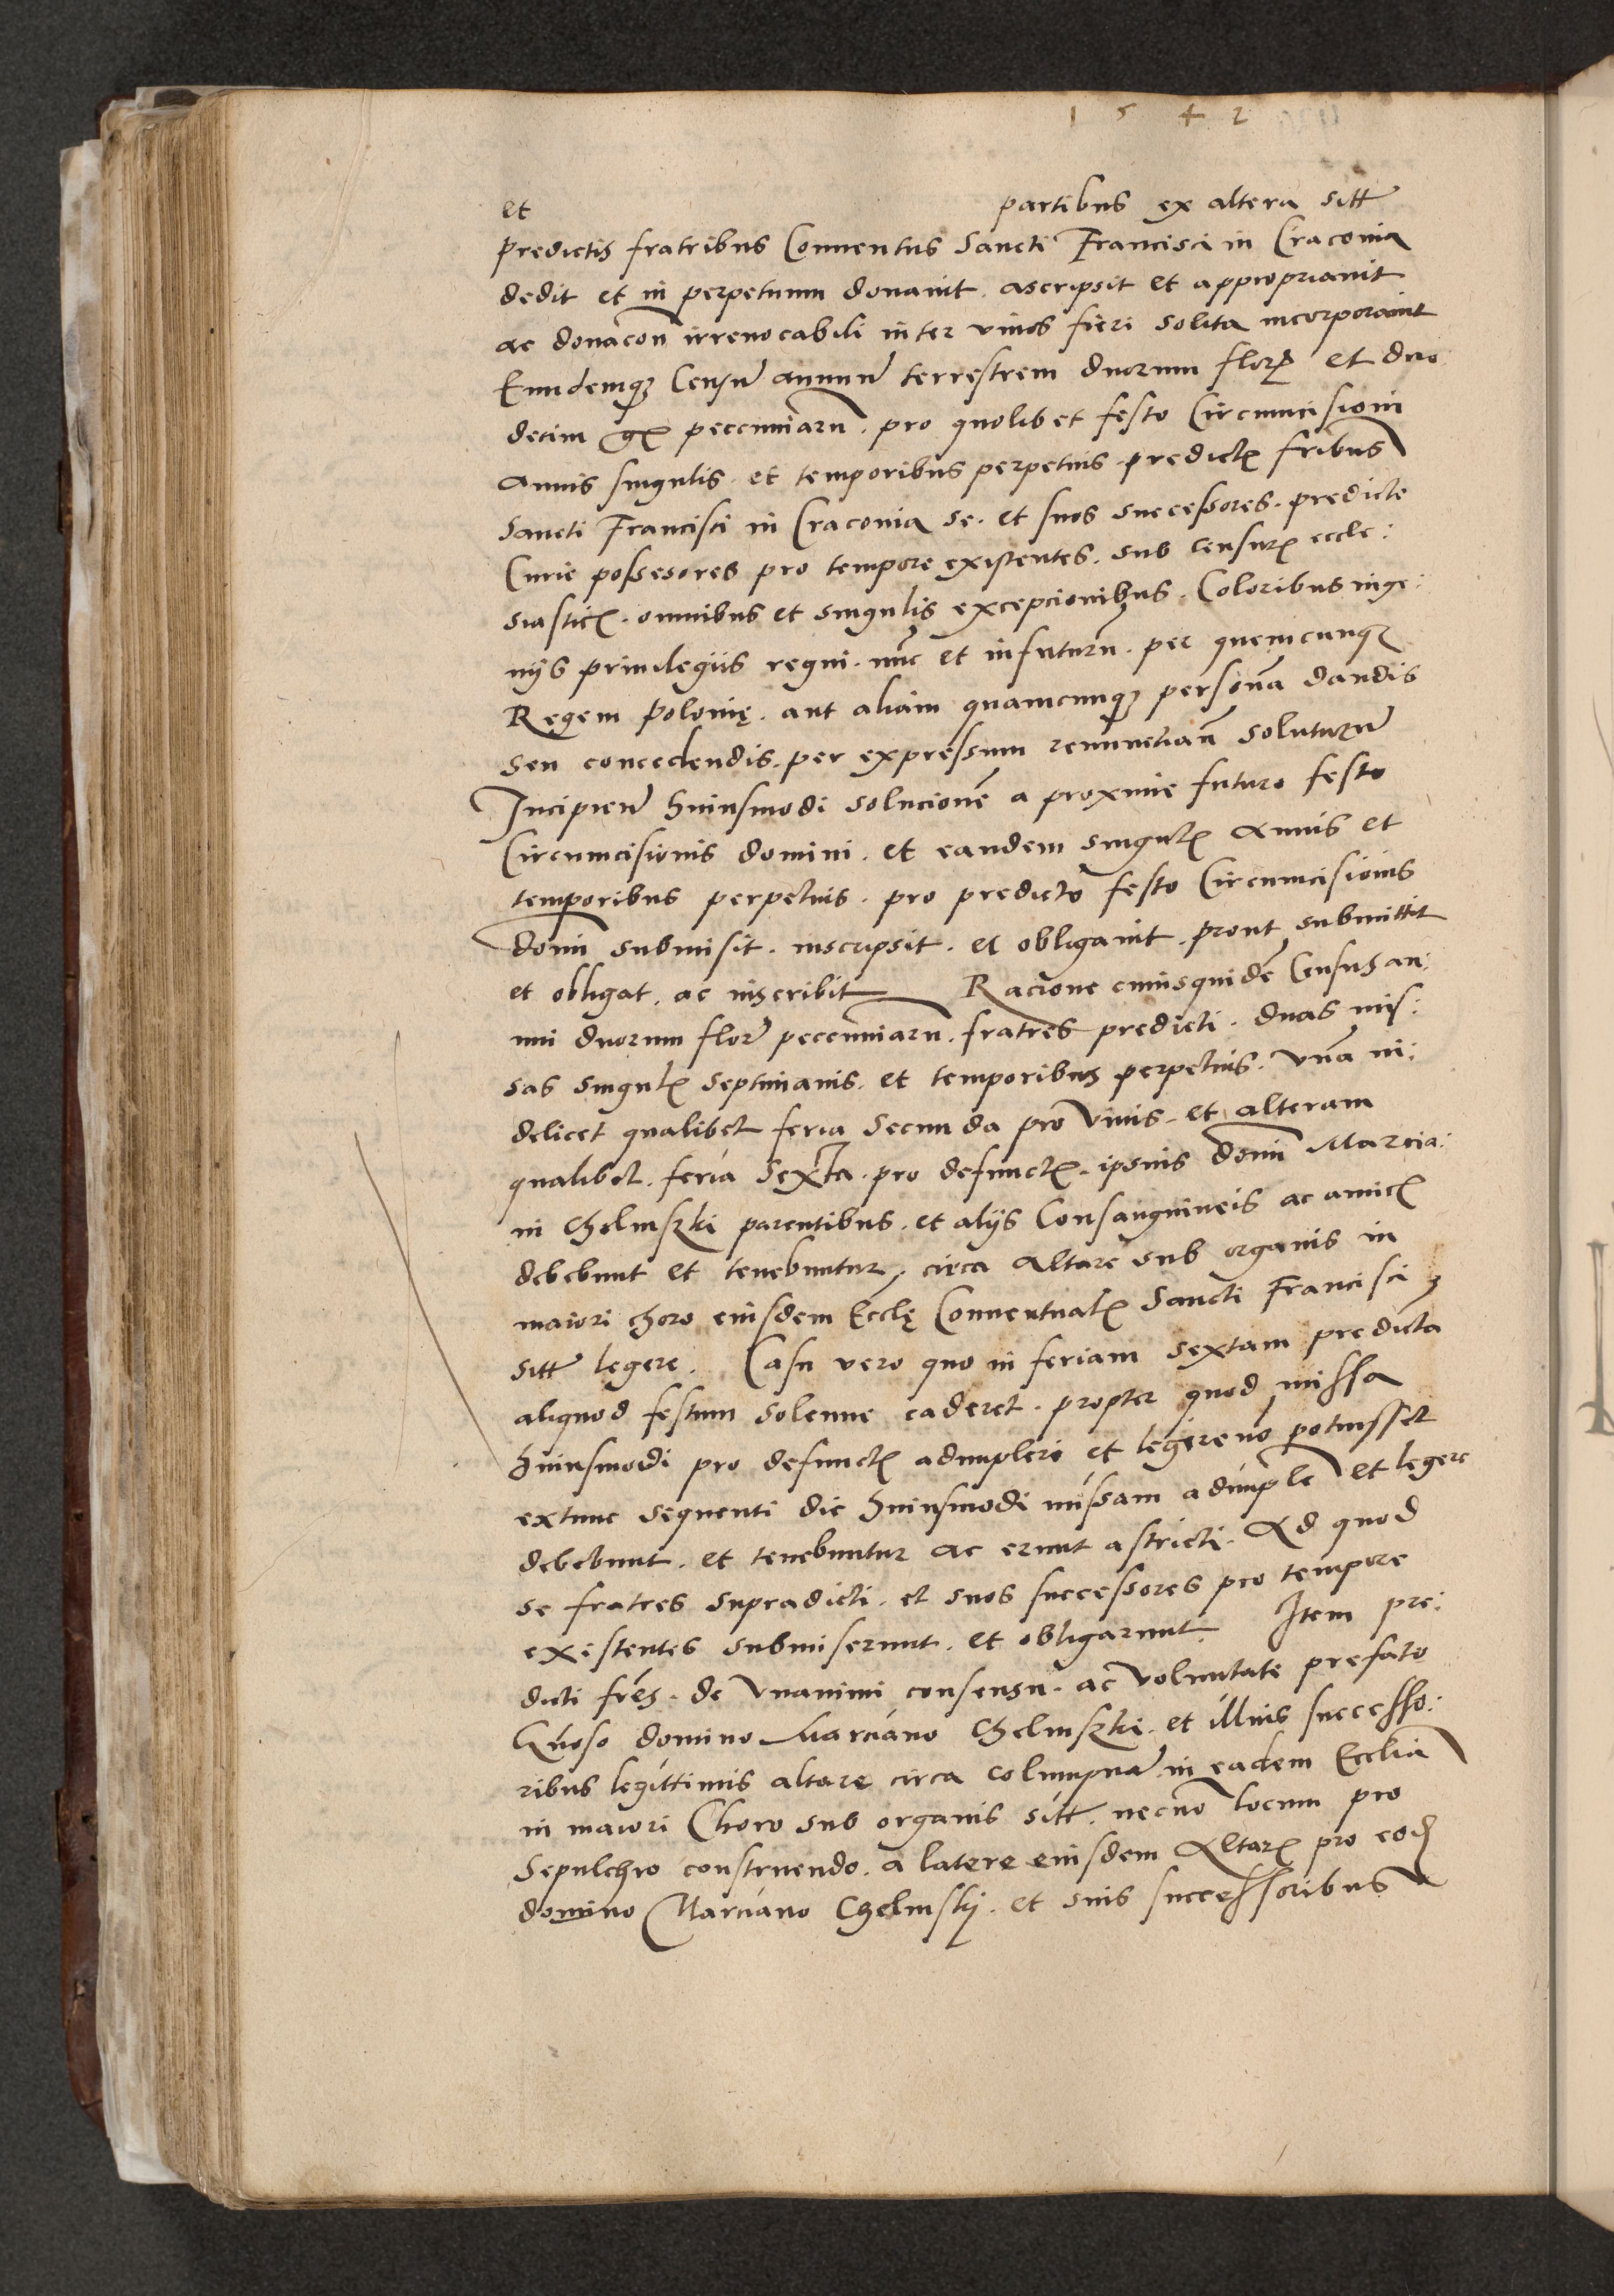 1 5 4 2
et partibus ex altera sitt
predictis fratribus Conuentus Sancti Francisci in Cracouia
dedit et in perpetuum donauit. ascripsit et appropriauit
ac donacon irreuocabili inter viuos fieri solita incorporauit
Eundemq Censu annuu terrestrem duorum flor et duo
decim gr pecuniaru. pro quolibet festo Circumcisioni
annis singulis. et temporibus perpetuis. predict fribus
Sancti Francisci in Cracouia se. et suos successores. predicte
Curie possesores pro tempore existentes. sub censur eccle:
siastic. omnibus et singulis excepcionibus. Coloribus inge:
nijs priuilegiis regni. nuc et in futuru. per quemcunq
Regem Polonię. aut aliam quamcunq persona dandis
seu concedendis. per expressum renunctian soluturu
Incipien huiusmodi solucione a proxime futuro festo
Circumcisionis domini. et eandem singul annis et
temporibus perpetuis. pro predicto festo Circumcisionis
domi submisit. inscripsit. et obligauit. prout submittit
et obligat. ac inscribit Racione cuiusquide Census an:
nui duorum flor pecuniaru. fratres predicti. duas mis:
sas singul septimanis. et temporibus perpetuis. vna ui:
delicet qualibet feria secunda pro viuis. et alteram
qualibet. feria sexta. pro defunct. ipsius domi Marcia:
ni Chelmszki parentibus. et alijs Consanguineis ac amic
debebunt et tenebuntur, circa altare sub organis in
maiori choro eiusdem Ecclę Conuentual Sancti Francisci
sitt legere. Casu vero quo in feriam sextam predicta
aliquod festum solenne caderet. propter quod missa
huiusmodi pro defunct adimpleri et legere no potuisset
extunc sequenti die huiusmodi missam adimple et legere
debebunt. et tenebuntur ac erunt astricti. Ad quod
se fratres supradicti. et suos successores pro tempore
existentes submiserunt. et obligarunt. Item pre:
dicti fres. de vnanimi consensu. ac voluntate prefato
Gnoso domino Marciano Chelmszki. et illius successo:
ribus legittimis altare circa columpna in eadem Ecclia
in maiori Choro sub organis sitt. necno locum pro
Sepulchro construendo. a latere eiusdem Altar pro eod
domino Marciano Chelmskj. et suis successoribus